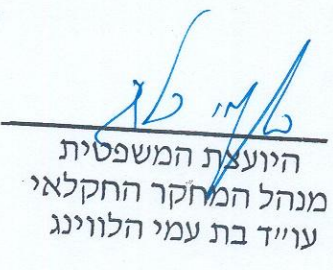 היועצת המשפטית
מנהל המחקר החקלאי
עו"ד בת עמי הלווינג